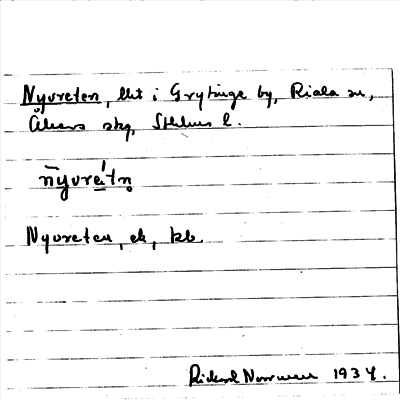 Nyvreten, lht i Grytinge by, Riala sn,
Åkers skg, Sthlms l.
nyvretn
Nyvreten, ek, kb.
Rickard Norrman 1934.